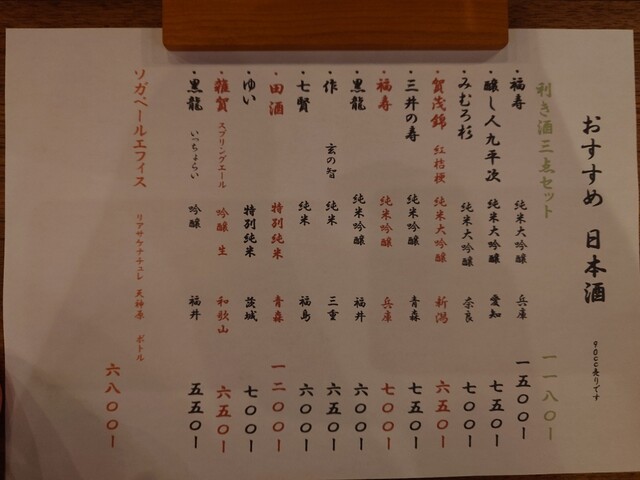 おすすめ 日本酒
90cc売りです
利き酒三点セット 一一八〇ー
・福寿 純米大吟醸 兵庫 一五〇〇ー
・醸し人九平次 純米大吟醸 愛知 七五〇ー
・みむろ杉 純米大吟醸 奈良 七〇〇ー
・賀茂錦 紅桔梗 純米大吟醸 新潟 六五〇ー
・三井の寿 純米吟醸 青森 七五〇ー
・福寿 純米吟醸 兵庫 七〇〇ー
・黒龍 純米吟醸 福井 六〇〇ー
・作 玄の智 純米 三重 六五〇ー
・七賢 純米 福島 六〇〇ー
・田酒 特別純米 青森 一二〇〇ー
・ゆい 特別純米 茨城 七〇〇ー
・雑賀 スプリングエール 吟醸 生 和歌山 六五〇ー
・黒龍 いっちょらい 吟醸 福井 五五〇ー
ソガペールエフィス リアサケナチュレ 天神原 ボトル 六八〇〇ー